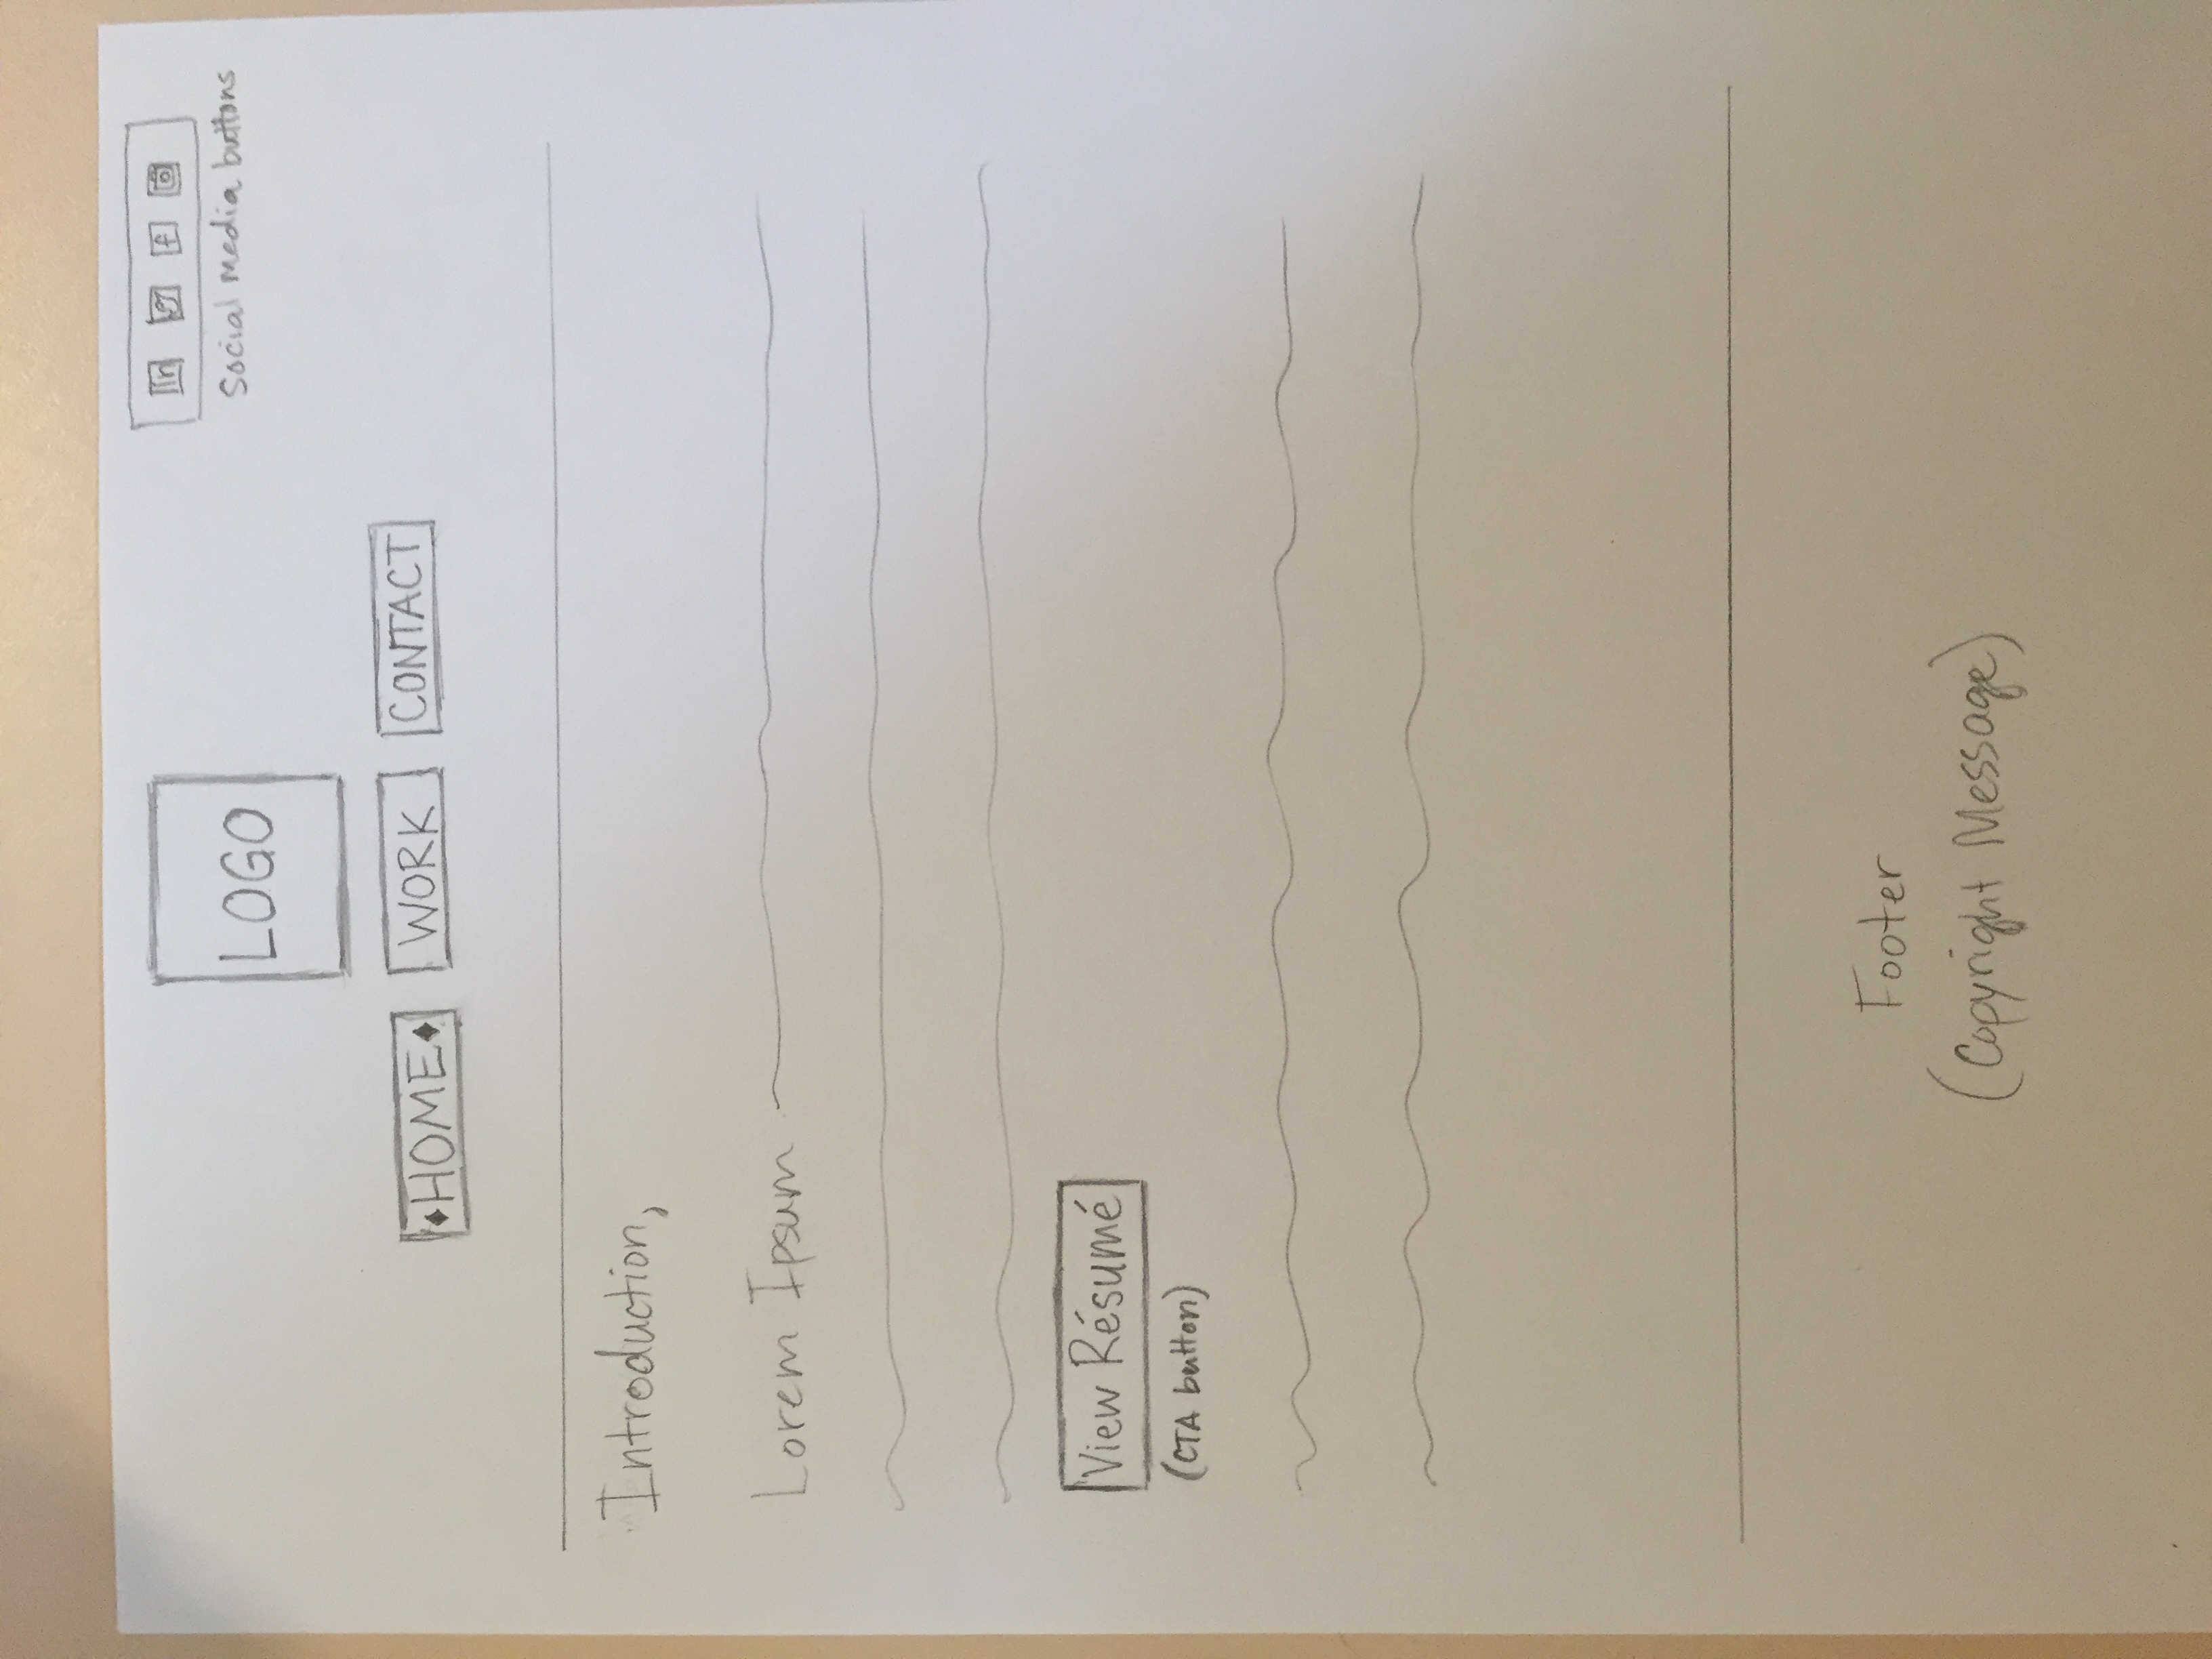 in f
Social media buttons
LOGO
♦HOME♦ WORK CONTACT
Introduction,
Lorem Ipsum
View Résumé
(CTA button)
Footer
(Copyright Message)